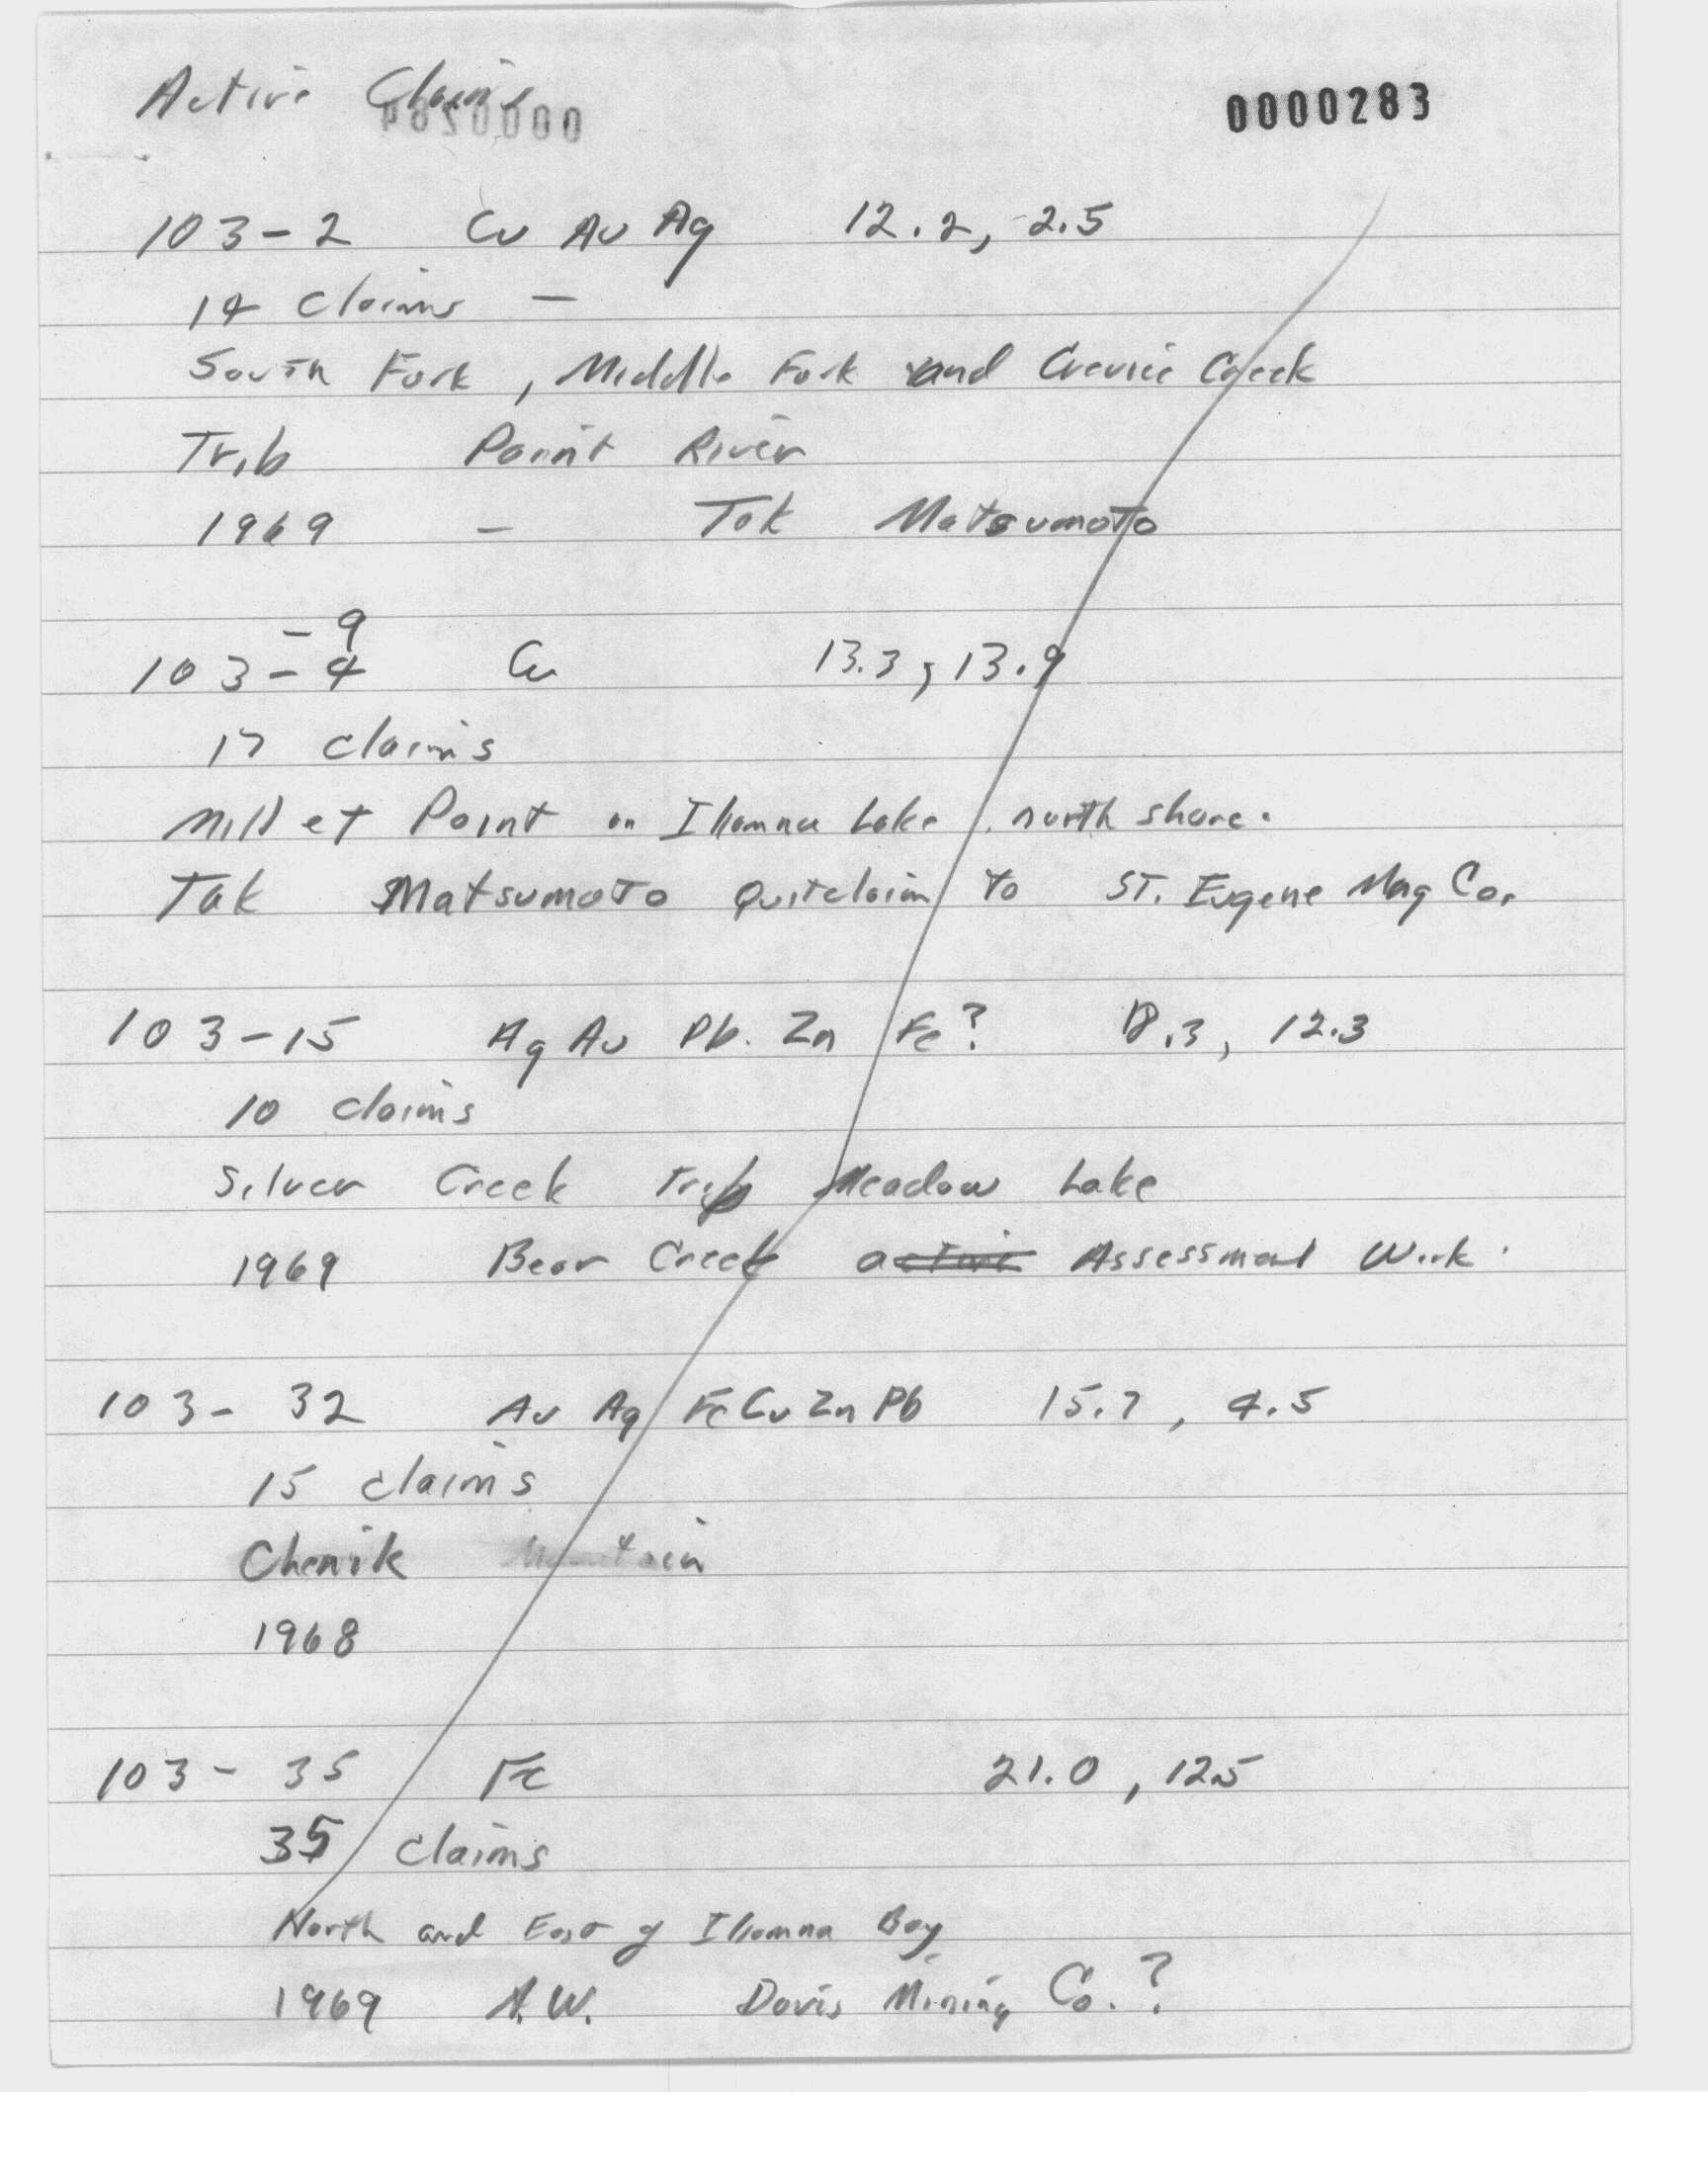 Active Claims
0000283
103-2 Cu Au Ag 12.2, 2.5
14 claims -
South Fork, Middle Fork and Crevice Creek
Trib Paint River
1969 - Tak Matsumoto
-9
103-4 Cu 13.3, 13.9
17 claims
Millet Point on Iliamna Lake, north shore.
Tak Matsumoto Quitclaim to ST. Eugene Mng Co.
103-15 Ag Au Pb. Zn Fe? 12.3
10 claims
Silver Creek Trib Meadow Lake
1969 Bear Creek active Assessment Work.
103-32 Au Ag Fe Cu Zn Pb 15.7, 4.5
15 claims
Chenik Mountain
1968
103-35 Fe 21.0, 12.5
35 claims
North and East of Iliamna Bay
1969 A.W. Davis Mining Co.?